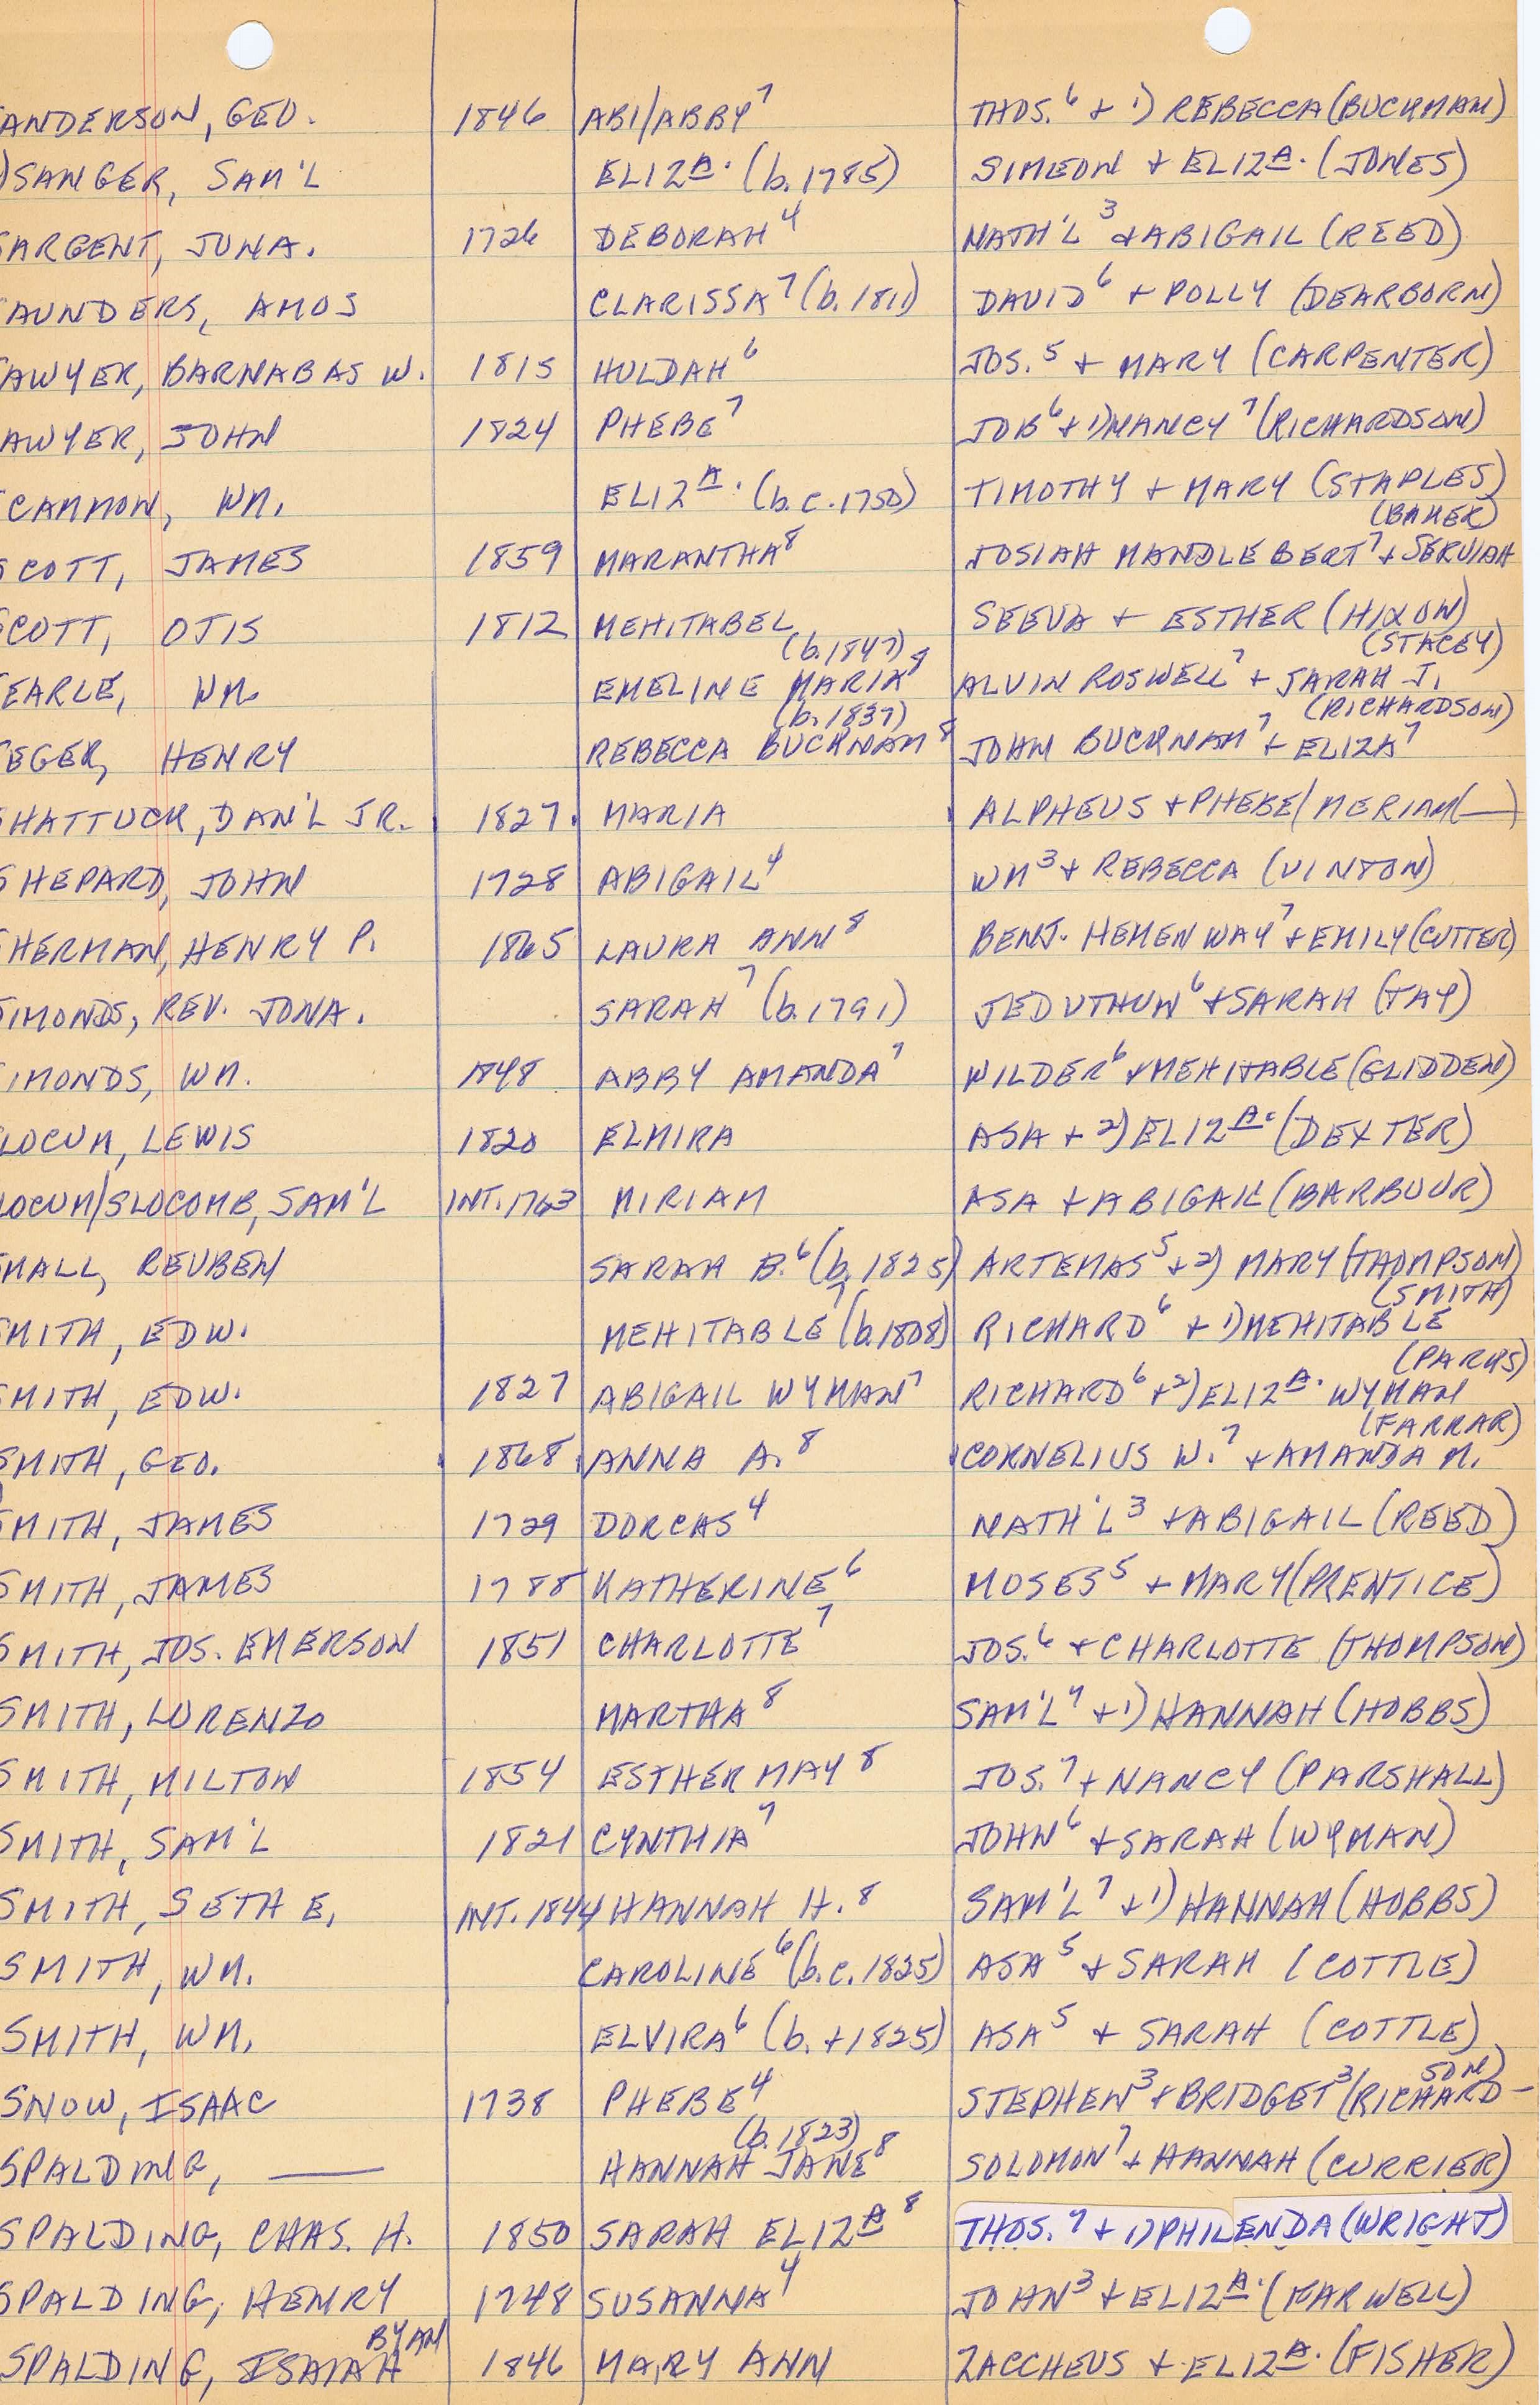 ANDERSON, GEO. 1846 ABI/ABBY⁷ THOS.⁶ + 1) REBECCA (BUCKMAN)
)SANGER, SAM'L ELIZA. (b.1785) SIMEON + ELIZA. (JONES)
SARGENT, JONA. 1726 DEBORAH⁴ NATH'L³ + ABIGAIL (REED)
AUNDERS, AMOS CLARISSA⁷ (b.1811) DAVID⁶ + POLLY (DEARBORN)
AWYER, BARNABAS W. 1815 HULDAH⁶ JOS.⁵ + MARY (CARPENTER)
AWYER, JOHN 1824 PHEBE⁷ JOB⁶ + 1) NANCY⁷ (RICHARDSON)
CAMMON, WM. ELIZA. (b.c.1750) TIMOTHY + MARY (STAPLES)
(BAKER)
SCOTT, JAMES 1859 MARANTHA⁸ JOSIAH MANDLEBERT⁷ + SERVIAH
SCOTT, OTIS 1812 MEHITABEL SEEVA + ESTHER (HIXON)
(b.1847) (STACEY)
EARLE, WM. EMELINE MARIA⁸ ALVIN ROSWELL⁷ + SARAH J.
(b.1837) (RICHARDSON)
EGER, HENRY REBECCA BUCKNAM⁸ JOHN BUCKNAM⁷ + ELIZA⁷
HATTUCK, DAN'L JR. 1827. MARIA ALPHEUS + PHEBE/MERIAM(—)
SHEPARD, JOHN 1728 ABIGAIL⁴ WM³ + REBECCA (VINTON)
HERMAN, HENRY P. 1865 LAURA ANN⁸ BENJ. HEMENWAY⁷ + EMILY (CUTTER)
SIMONDS, REV. JONA. SARAH⁷ (b.1791) JEDUTHUN⁶ + SARAH (TAY)
IMONDS, WM. 1848 ABBY AMANDA⁷ WILDER⁶ + MEHITABLE (GLIDDEN)
LOCUM, LEWIS 1820 ELMIRA ASA + 2) ELIZA. (DEXTER)
LOCUM/SLOCOMB, SAM'L INT. 1763 MIRIAM ASA + ABIGAIL (BARBOUR)
MALL, REUBEN SARAH B.⁶ (b.1825) ARTEMAS⁵ + 2) MARY (THOMPSON)
(SMITH)
MITH, EDW. MEHITABLE⁷ (b.1808) RICHARD⁶ + 1) MEHITABLE
(PARKS)
SMITH, EDW. 1827 ABIGAIL WYMAN⁷ RICHARD⁶ + 2) ELIZA. WYMAN
(FARRAR)
SMITH, GEO. 1868 ANNA A.⁸ CORNELIUS W.⁷ + AMANDA M.
SMITH, JAMES 1729 DORCAS⁴ NATH'L³ + ABIGAIL (REED)
SMITH, JAMES 1788 KATHERINE⁶ MOSES⁵ + MARY (PRENTICE)
SMITH, JOS. EMERSON 1851 CHARLOTTE⁷ JOS.⁶ + CHARLOTTE (THOMPSON)
SMITH, LORENZO MARTHA⁸ SAM'L⁷ + 1) HANNAH (HOBBS)
SMITH, MILTON 1854 ESTHER MAY⁸ JOS.⁷ + NANCY (PARSHALL)
SMITH, SAM'L 1821 CYNTHIA⁷ JOHN⁶ + SARAH (WYMAN)
SMITH, SETH E. INT. 1844 HANNAH H.⁸ SAM'L⁷ + 1) HANNAH (HOBBS)
SMITH, WM. CAROLINE⁶ (b.c.1825) ASA⁵ + SARAH (COTTLE)
SMITH, WM. ELVIRA⁶ (b.+1825) ASA⁵ + SARAH (COTTLE)
SON)
SNOW, ISAAC 1738 PHEBE⁴ STEPHEN³ + BRIDGET³ (RICHARD-
(b.1823)
SPALDING, —— HANNAH JANE⁸ SOLOMON⁷ + HANNAH (CURRIER)
SPALDING, CHAS. H. 1850 SARAH ELIZA⁸ THOS.⁷ + 1) PHILENDA (WRIGHT)
SPALDING, HENRY 1748 SUSANNA⁴ JOHN³ + ELIZA. (FARWELL)
BYAM
SPALDING, ISAIAH 1846 MARY ANN ZACCHEUS + ELIZA. (FISHER)